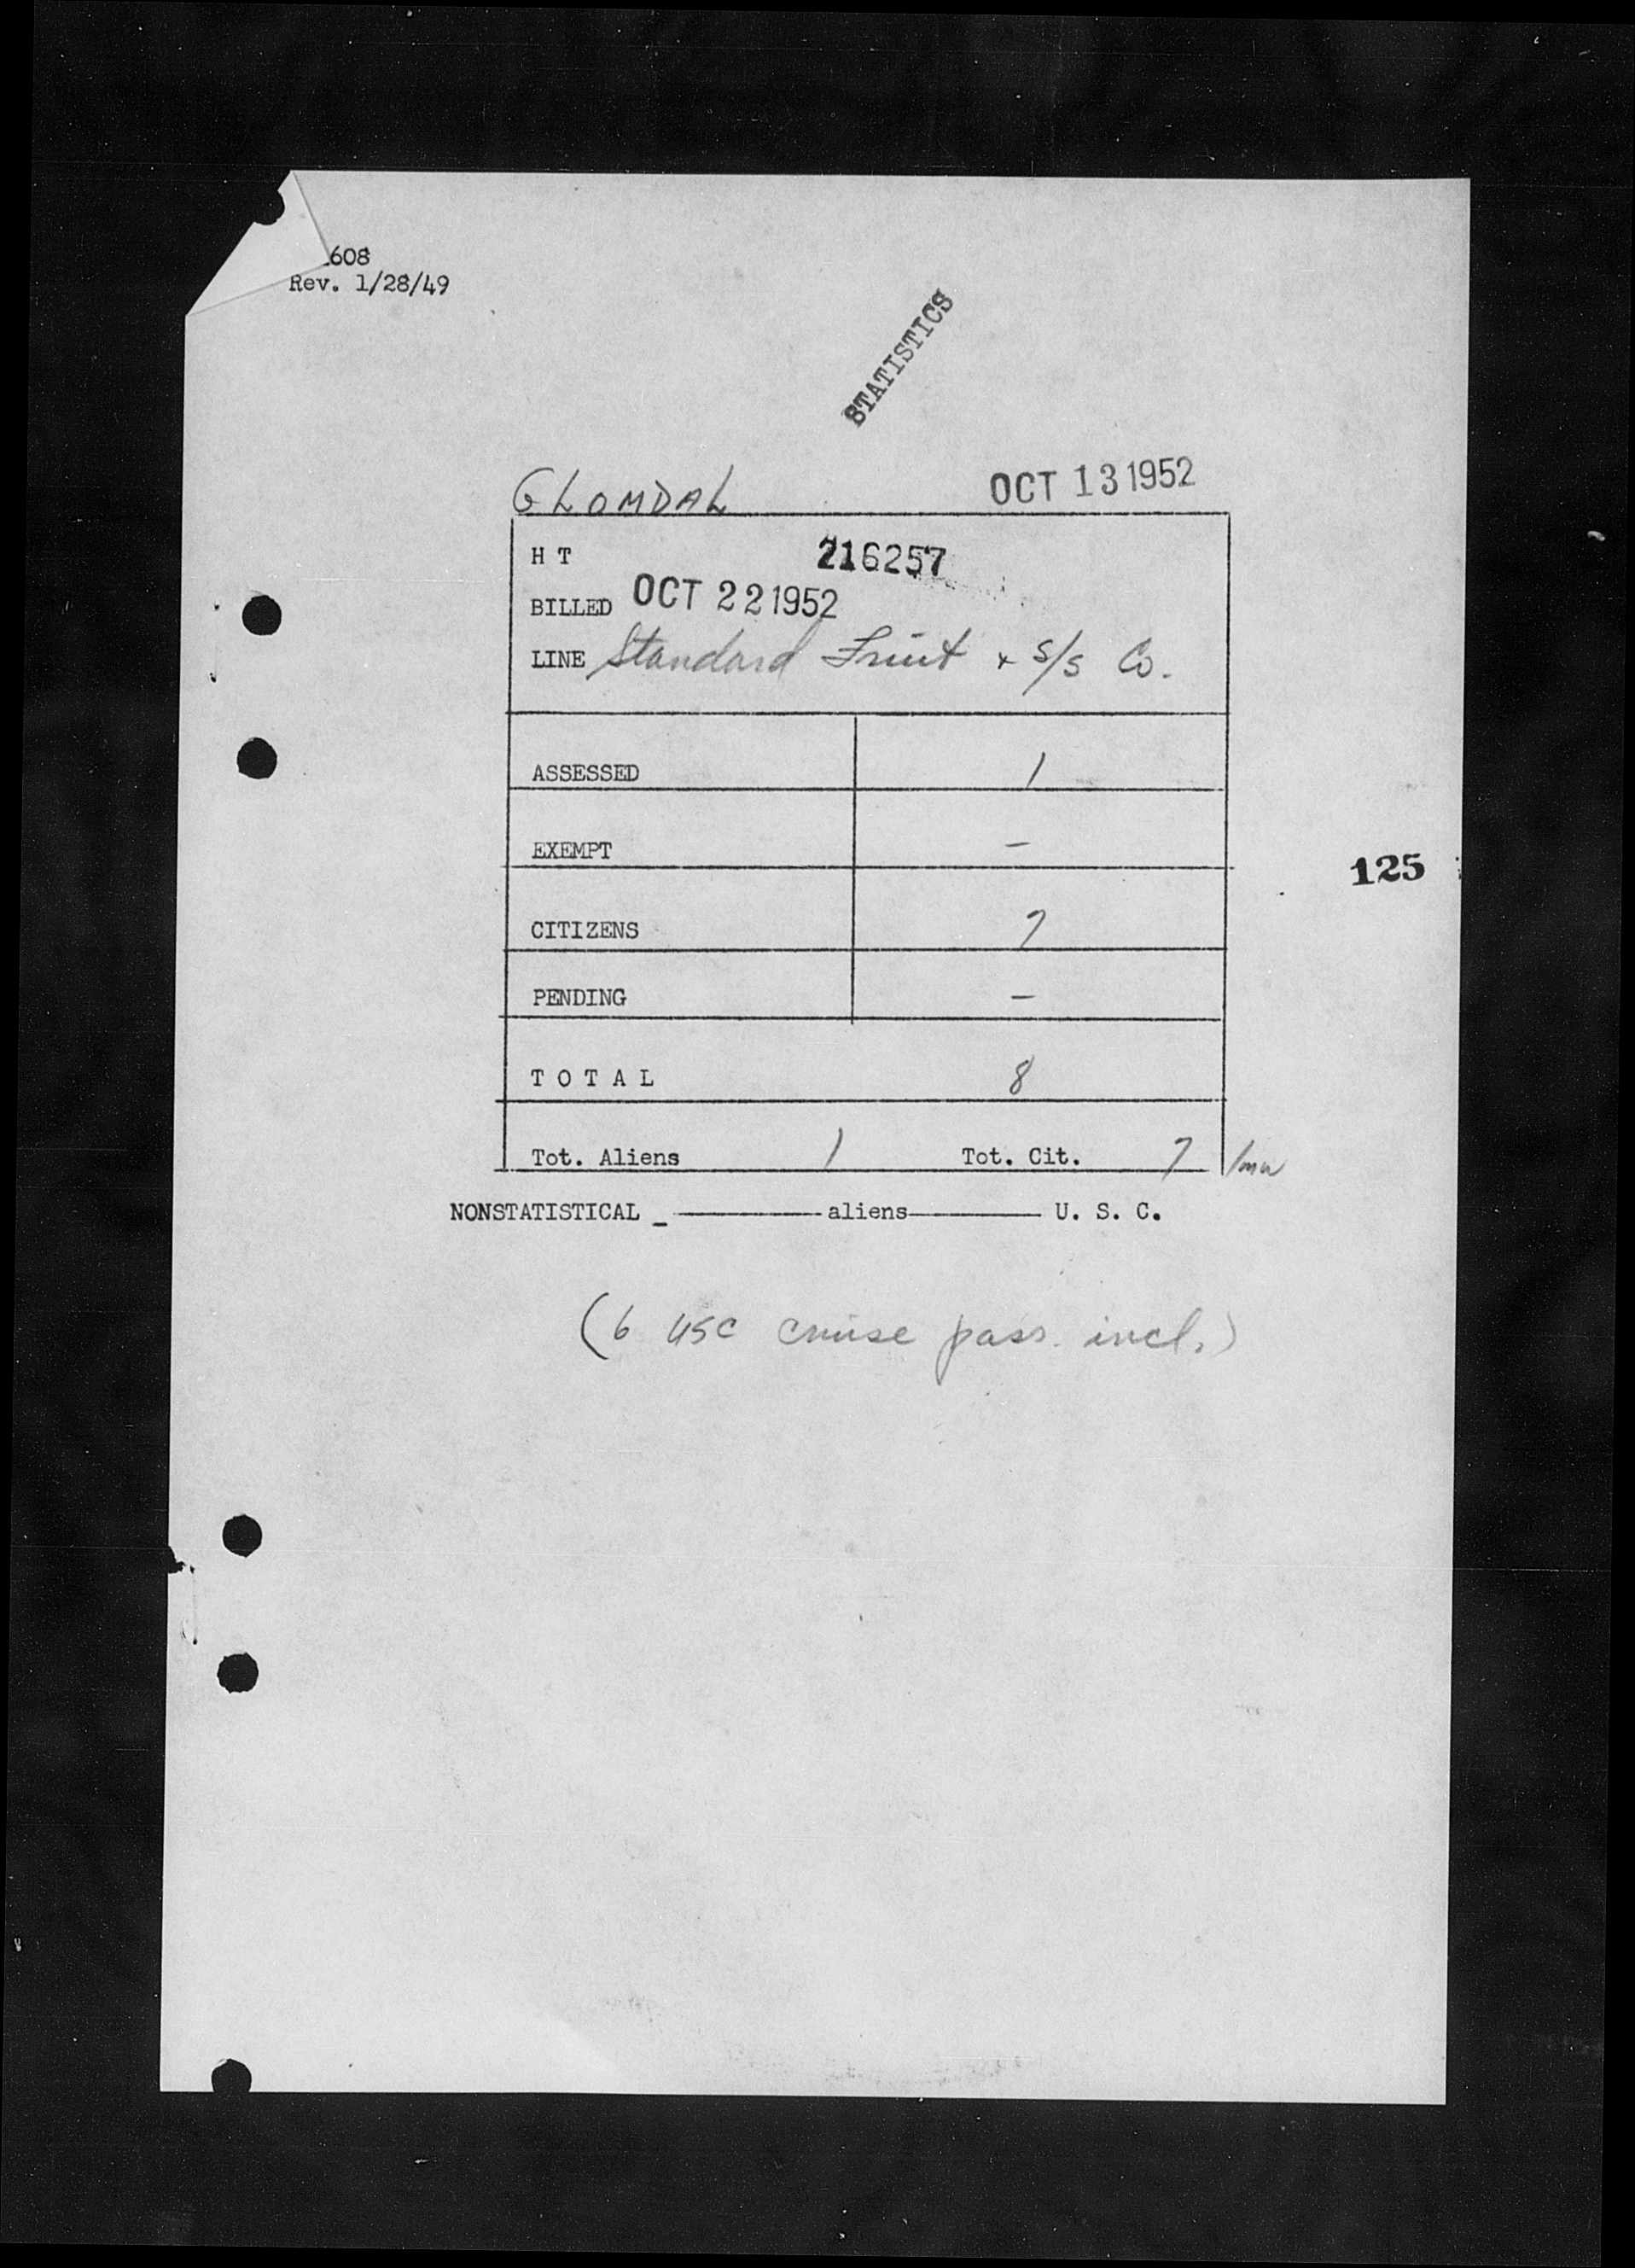 608
Rev. 1/28/49
STATISTICS
GLOMDAL OCT 13 1952
H T 216257
BILLED OCT 22 1952
LINE Standard Fruit + S/S Co.
ASSESSED 1
EXEMPT —
CITIZENS 7
125
PENDING —
T O T A L 8
Tot. Aliens 1 Tot. Cit. 7
NONSTATISTICAL _ ———— aliens ———— U. S. C.
(6 USC cruise pass. incl.)